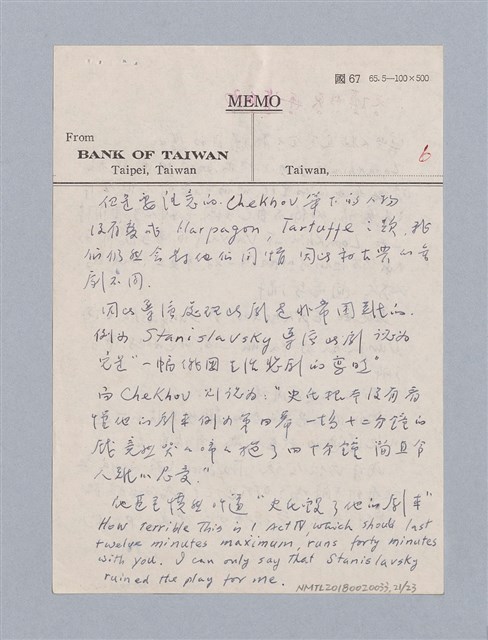 國 67 65.5—100×500
MEMO
From
BANK OF TAIWAN
Taipei, Taiwan
Taiwan,
6
但是要注意的. Chekhov 筆下的人物
沒有變成 Harpagon, Tartuffe 之類, 我
們仍然会對他們同情, 因此和古典的喜
劇不同.
因此導演處理此劇是非常困難的.
例如 Stanislavsky 導演此劇 認為
它是"一幅俄國生活悲劇的
而 Chekhov 則認為:"史氏根本沒有看
懂他的劇本例如第四幕 一場十二分鐘的
戲竟然哭哭啼啼拖了四十分鐘 簡直令
人難以忍受."
他甚至憤然 道 "史氏毀了他的劇本"
How terrible This is! Act IV, which should last
twelve minutes maximum, runs forty minutes
with you. I can only say that Stanislavsky
ruined the play for me.
NMTL20180020033, 21/23